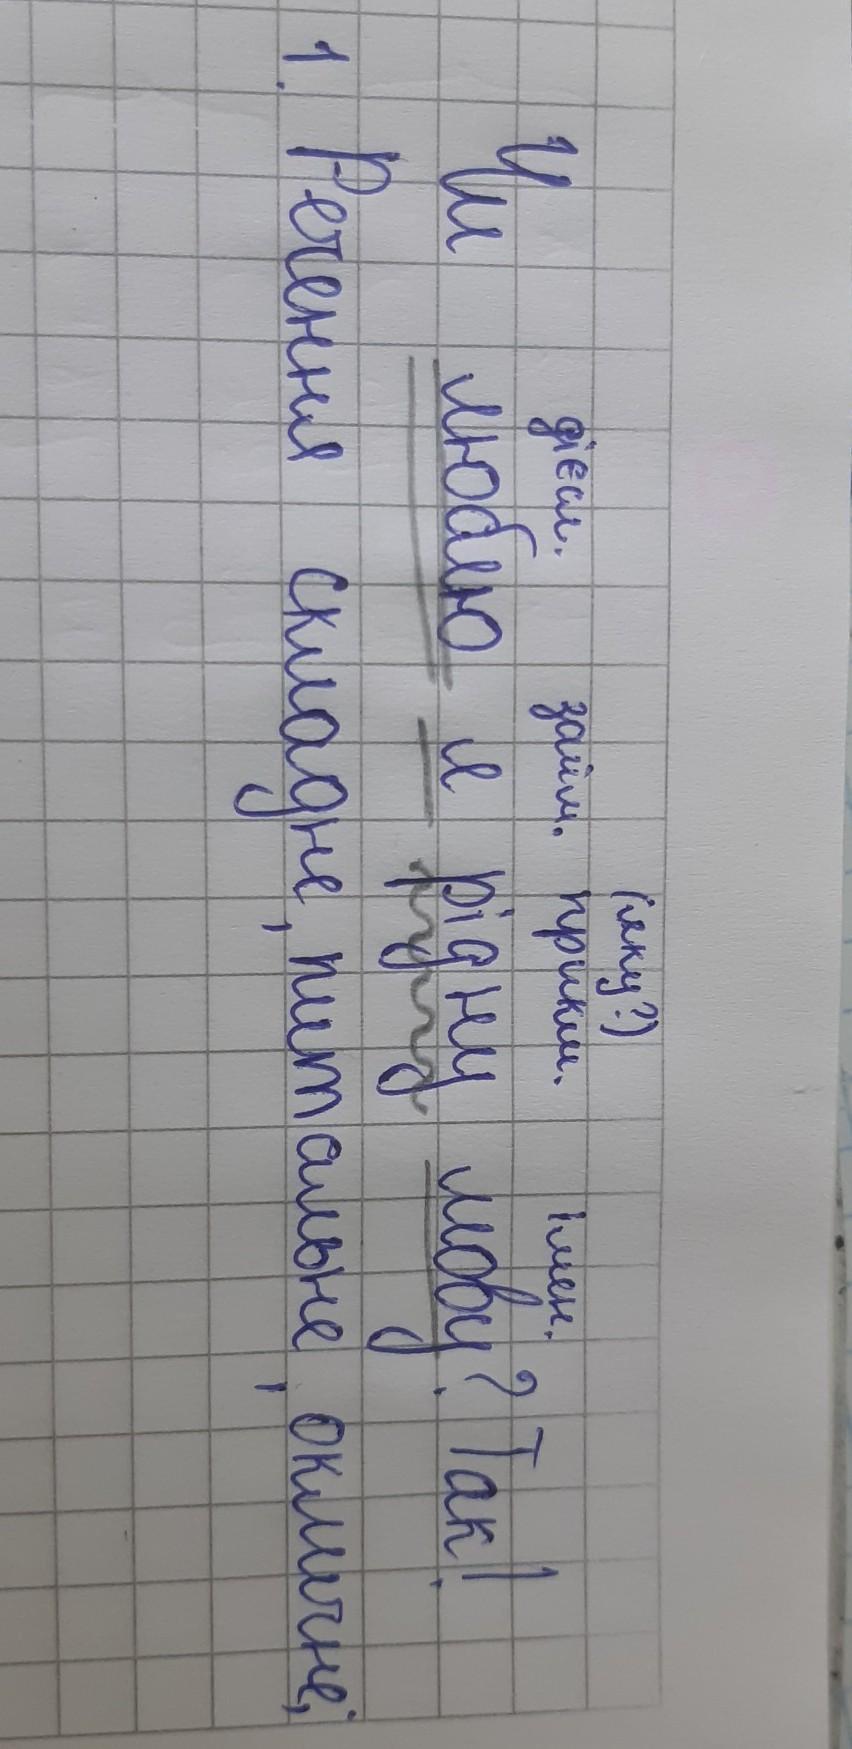 (яку?)
дієсл. займ. прикм. імен.
Чи люблю я рідну мову? Так!
1. Речення складне, питальне, окличне,